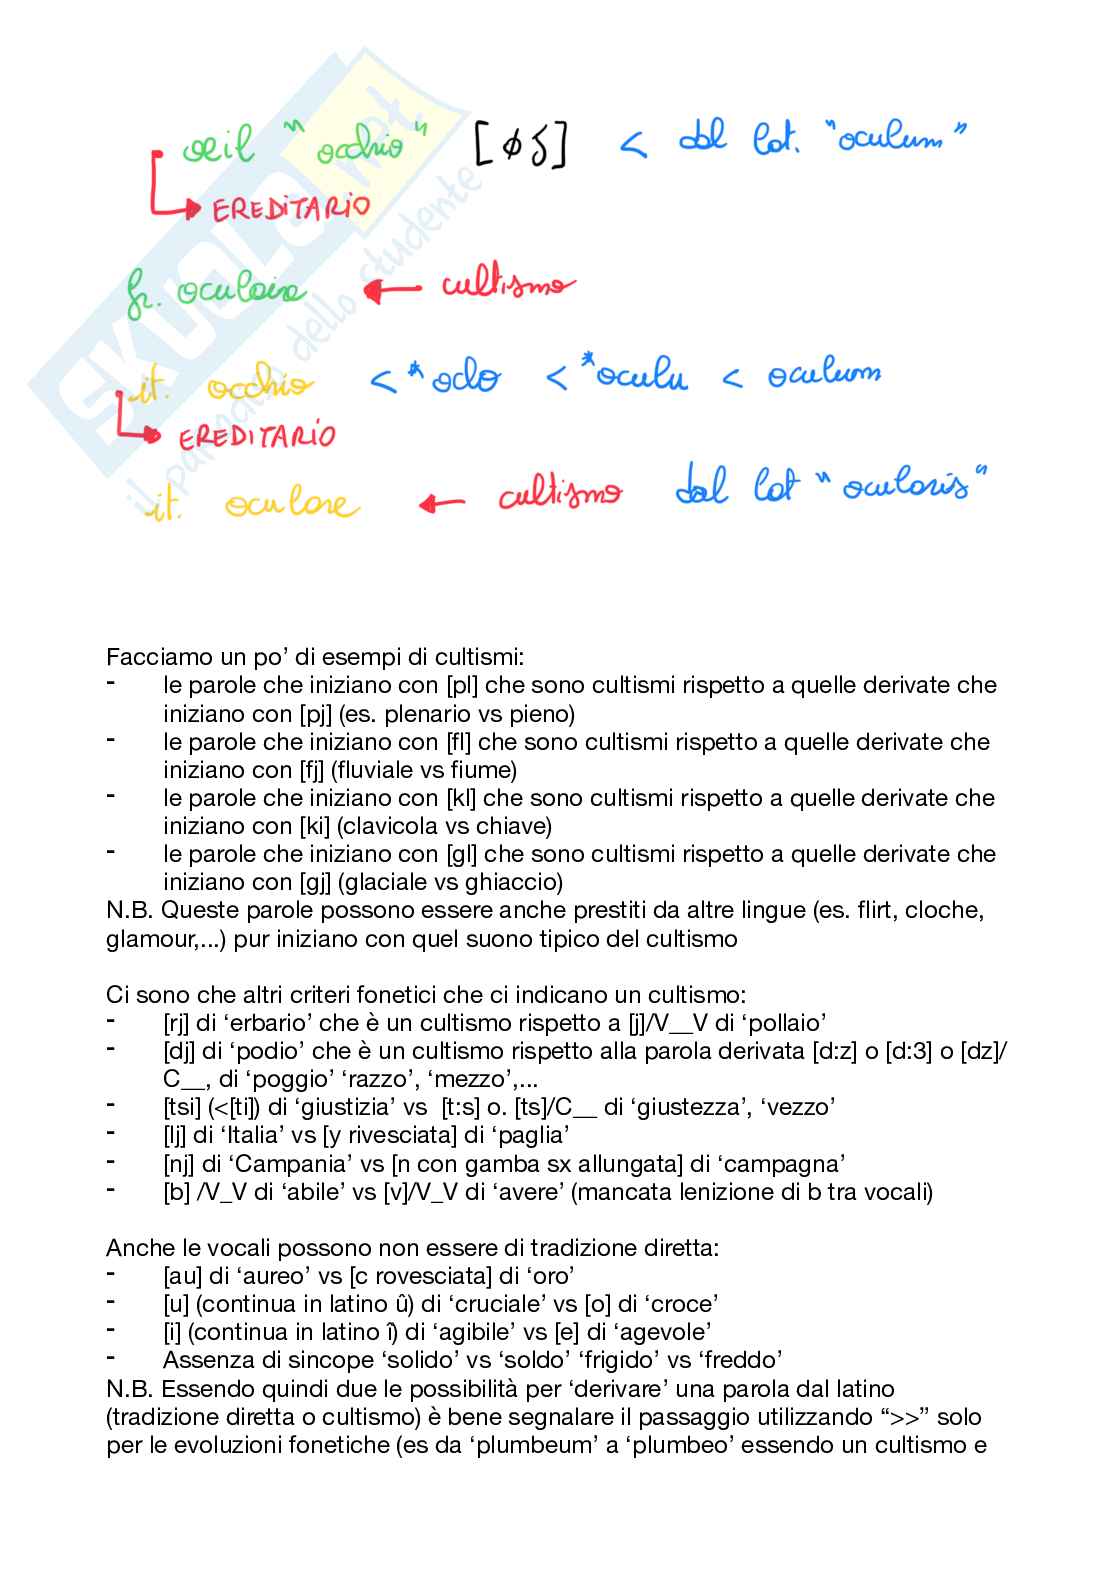 œil " occhio " [øj] < dal lat. "oculum"
EREDITARIO
fr. oculaire ← cultismo
it. occhio < *oclo < *oculu < oculum
EREDITARIO
it. oculare ← cultismo dal lat "ocularis"
SKUOLA.net
il paradiso dello studente
Facciamo un po’ di esempi di cultismi:
- le parole che iniziano con [pl] che sono cultismi rispetto a quelle derivate che
iniziano con [pj] (es. plenario vs pieno)
- le parole che iniziano con [fl] che sono cultismi rispetto a quelle derivate che
iniziano con [fj] (fluviale vs fiume)
- le parole che iniziano con [kl] che sono cultismi rispetto a quelle derivate che
iniziano con [ki] (clavicola vs chiave)
- le parole che iniziano con [gl] che sono cultismi rispetto a quelle derivate che
iniziano con [gj] (glaciale vs ghiaccio)
N.B. Queste parole possono essere anche prestiti da altre lingue (es. flirt, cloche,
glamour,...) pur iniziano con quel suono tipico del cultismo
Ci sono che altri criteri fonetici che ci indicano un cultismo:
- [rj] di ‘erbario’ che è un cultismo rispetto a [j]/V__V di ‘pollaio’
- [dj] di ‘podio’ che è un cultismo rispetto alla parola derivata [d:z] o [d:3] o [dz]/
C__, di ‘poggio’ ‘razzo’, ‘mezzo’,...
- [tsi] (<[ti]) di ‘giustizia’ vs [t:s] o. [ts]/C__ di ‘giustezza’, ‘vezzo’
- [lj] di ‘Italia’ vs [y rivesciata] di ‘paglia’
- [nj] di ‘Campania’ vs [n con gamba sx allungata] di ‘campagna’
- [b] /V_V di ‘abile’ vs [v]/V_V di ‘avere’ (mancata lenizione di b tra vocali)
Anche le vocali possono non essere di tradizione diretta:
- [au] di ‘aureo’ vs [c rovesciata] di ‘oro’
- [u] (continua in latino û) di ‘cruciale’ vs [o] di ‘croce’
- [i] (continua in latino î) di ‘agibile’ vs [e] di ‘agevole’
- Assenza di sincope ‘solido’ vs ‘soldo’ ‘frigido’ vs ‘freddo’
N.B. Essendo quindi due le possibilità per ‘derivare’ una parola dal latino
(tradizione diretta o cultismo) è bene segnalare il passaggio utilizzando “>>” solo
per le evoluzioni fonetiche (es da ‘plumbeum’ a ‘plumbeo’ essendo un cultismo e